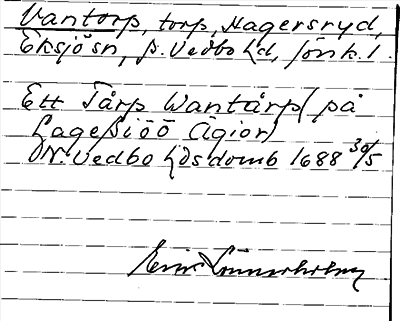 Vantorp, torp, Hagersryd,
Eksjösn, s. Vedbo hd, Jönk. l.
Ett Tårp Wantårp (på
Lageßiöö Ägior)
N. Vedbo hdsdomb 1688 30/5